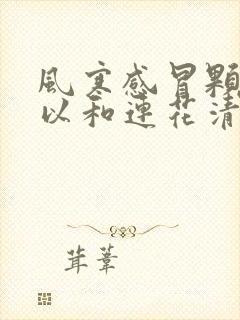 風寒感冒顆
以和連花清
茸葦